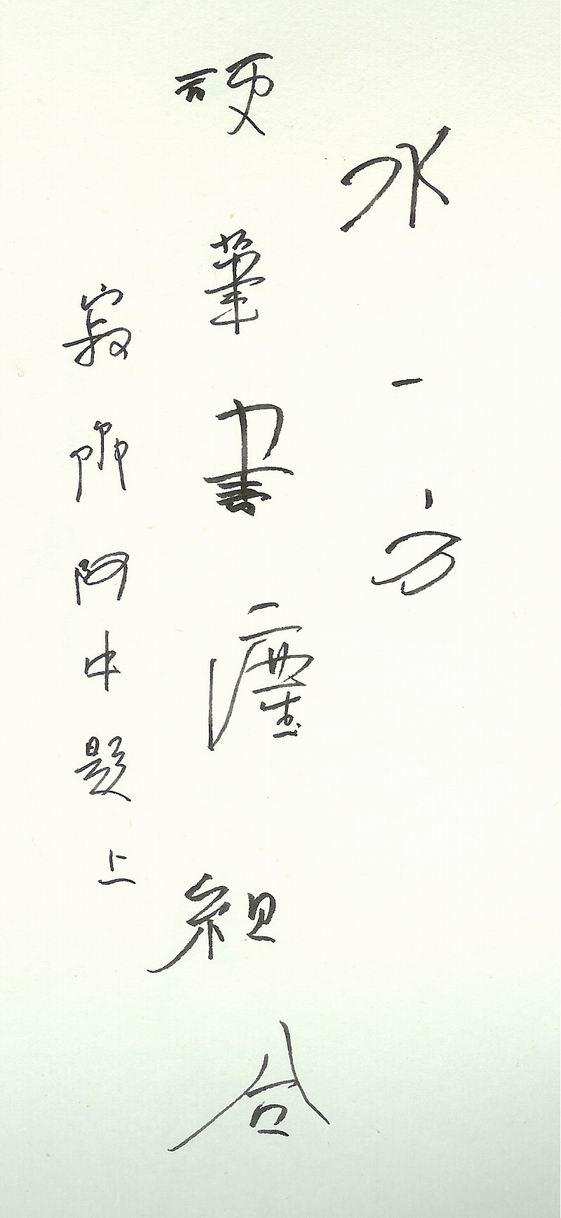 水一方
硬筆書組合
寂阿中題上